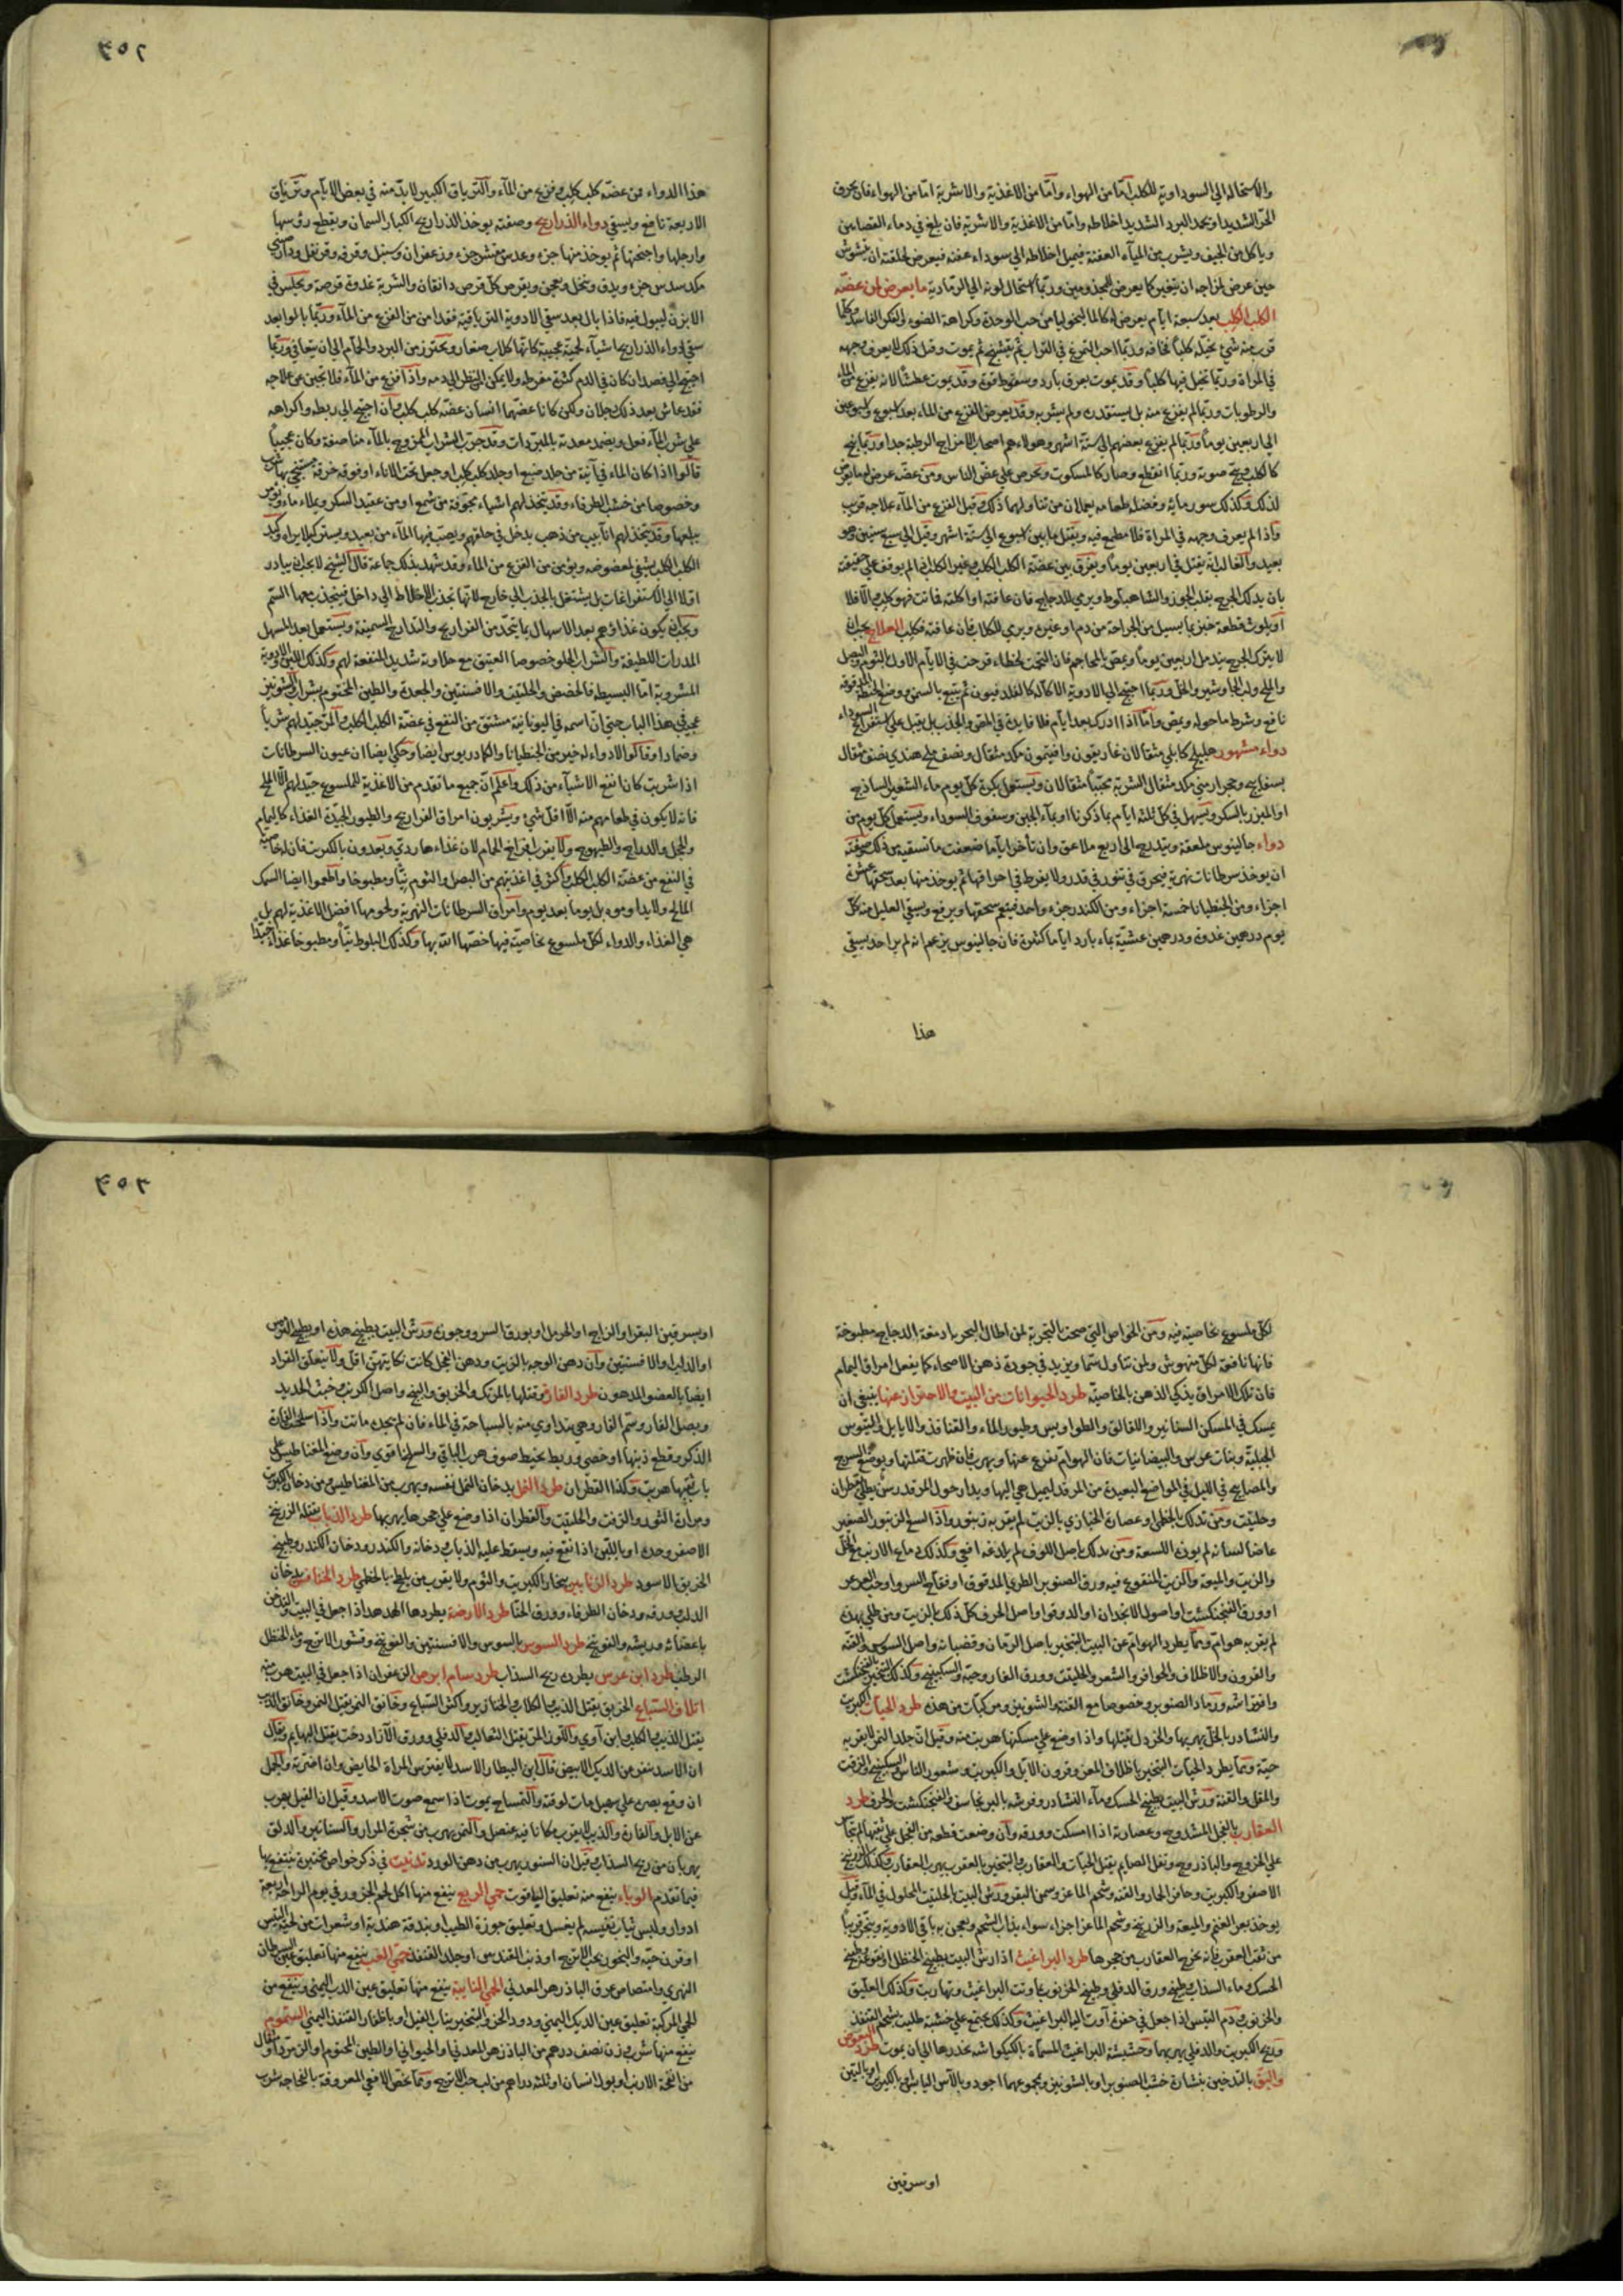 والاستحالة الى السوداوية للكلب اما من الهواء واما من الاغذية والاشربة اما من الهواء فان يحرق
الحر الشديد او يجمد البرد الشديد اخلاطه واما من الاغذية والاشربة فان يلغ في دماء القصابين
وياكل من الجيف ويشرب من المياه العفنة فيميل اخلاطه الى سوداء عفنة فيعرض لخلقته ان يتشوش
حين عرض لمزاجه ان يتغير كما يعرض للمجذومين وربما استحال لونه الى الرمادية ما يعرض لمن عضه
الكلب الكلب بعد سبعة ايام يعرض له كالمالنخوليا من حب الوحدة وكراهة الضوء والفكر الفاسد وكلما
قرب منه شئ تخيله كلبا فخافه وربما احب التمرغ في التراب ثم يتشنج ثم يموت وقبل ذلك لا يعرف وجهه
في المراة وربما تخيل فيها كلبا وقد يموت بعرق بارد وسقوط قوة وقد يموت عطشا لانه يفزع من الماء
والرطوبات وربما لم يفزع منه بل يستقذره ولم يشربه وقد يعرض الفزع من الماء بعد اسبوع واسبوعين
الى اربعين يوما وربما لم يفزع بعضهم الى ستة اشهر وهولاء هم اصحاب الامزاج الرطبة جدا وربما نبح
كالكلب وبح صوته وربما انقطع وصار كالمسكوت ويحرص على عض الناس ومن عضه عرض له ما يعرض
لذلك وكذلك سور مائه وفضل طعامه يعملان من تناولهما ذلك وقبل الفزع من الماء علاجه قريب
واذا لم يعرف وجهه في المراة فلا مطمع فيه ويقتل ما بين اسبوع الى ستة اشهر وقيل الى سبع سنين وهو
بعيد والغالب انه يقتل في اربعين يوما ويفرق بين عضة الكلب الكلب وغير الكلب اذا لم يوقف على حقيقته
بان يدلك الجرح بقلب الجوز والشاهبلوط ويرمى للدجاج فان عافته او اكلته فماتت فهو كلب والا فلا
او يلوث قطعة خبز بما يسيل من الجراحة من دم او غيره ويرمى للكلاب فان عافته فكلب العلاج يجب ان
لا يترك الجرح يندمل اربعين يوما ويمص بالمحاجم فان التحمت لخطاء قرحت في الايام الاول بالثوم والبصل
والملح ولب الجاوشير والخل وربما احتيج الى الادوية الاكالة كالفلدفيون ثم يتبع بالسمن ووضع الحنطة المدقوقة
نافع وشرط ما حوله ويمص واما اذا ادرك بعد ايام فلا فايدة في المص والجذب بل يقبل على استفراغ السوداء
دواء مشهور هليلج كابلي مثقالان غاريقون وافتيمون مكد مثقال ونصف ملح هندي نصف مثقال
بسفايج وحجر ارمني مكد مثقال الشربة محببا مثقالان ويستعمل بكرة كل يوم ماء الشعير الساذج
او المبزر بالسكر ويسهل في كل ثلثة ايام بما ذكرنا او بماء الجبن وسفوف السوداء ويستعمل كل يوم من
دواء جالينوس ملعقة ويتدرج الى اربع ملاعق وان تاخر اياما ضعفت ما تسقيه من ذلك وصفته
ان يوخذ سرطانات نهرية فيحرق في تنور في قدر ولا يفرط في احراقها ثم يوخذ منها بعد سحقها عشرة
اجزاء ومن الجنطيانا خمسة اجزاء ومن الكندر جزء واحد فينعم سحقها ويرفع ويسقى العليل منه كل
يوم درهمين غدوة ودرهمين عشية بماء بارد اياما كثيرة فان جالينوس يزعم انه لم ير احد يسقى
هذا
٣٥٢
هذا الدواء ممن عضه كلب كلب وفزع من الماء والترياق الكبير لا بد منه في بعض الايام وترياق
الاربعة نافع ويسقى دواء الذراريح وصفته يوخذ الذراريح الكبار السمان ويقطع رؤسها
وارجلها واجنحتها ثم يوخذ منها جزء وعدس مقشر جزء وزعفران وسنبل وقرفة وقرنفل ودارصيني
مكد سدس جزء ويدق وينخل ويعجن ويقرص كل قرص دانقان والشربة غدوة قرصة ويجلس في
الابزن ليبول فيه فاذا بال بعد سقي الادوية الترياقية فقد امن من الفزع من الماء وربما بالوا بعد
سقي دواء الذراريح اشياء لحمية عجيبة كانها كلاب صغار ويحترز من البرد والحمام الى ان يتعافى وربما
احتيج الى فصد ان كان في الدم كثرة مفرطة ولا يمكن النظر الى دمه واذا فزع من الماء فلا تجبن عن علاجه
فقد عاش بعد ذلك رجلان ولكن كانا عضهما انسان عضه كلب كلب وان احتيج الى ربطه واكراهه
على شرب الماء فعل ويضمد معدته بالمبردات وقد جرب الشراب الممزوج بالماء مناصفة وكان عجيبا
قالوا اذا كان الماء في آنية من جلد ضبع او جلد كلب كلب او جعل تحت الاناء او فوقه خرقة مستنجى بها شرب
وخصوصا من خشب الطرفاء وقد يتخذ لهم اشياء مجوفة من شمع او من عقيد السكر ويملاء ماء ويؤمر
ببلعها وقد يتخذ لهم انابيب من ذهب يدخل في حلقهم ويصب فيها الماء من بعيد ويستر كيلا يراه وكبد
الكلب الكلب يشفي لمعضوضه ويؤمن من الفزع من الماء وقد شهد بذلك جماعة قال الشيخ لا يجب ان يبادر
اولا الى الاستفراغات بل يشتغل بالجذب الى خارج لانها تجذب الاخلاط الى داخل فينجذب معها السم
ويجب ان يكون غذاؤهم بعد الاسهال بما يتخذ من الفراريج والتدارج السمينة ويستعمل بعد المسهل
المدرات اللطيفة والشراب الحلو خصوصا العتيق مع حلاوته شديد المنفعة لهم وكذلك اللبن والادوية
المشروبة اما البسيطة فالحضض والحلتيت والافسنتين والجعدة والطين المختوم بشراب والشونيز
عجيب في هذا الباب حتى ان اسمه في اليونانية مشتق من النفع في عضة الكلب الكلب والمر جيد لهم شربا
وضمادا وقالوا لا دواء له خير من الجنطيانا والكمادريوس ايضا وحكي ايضا ان عيون السرطانات
اذا شربت كان انفع الاشياء من ذلك واعلم ان جميع ما تقدم من الاغذية للملسوع جيد لهم الا الملح
فانه لا يكون في طعامهم منه الا اقل شئ ويشربون امراق الفراريج والطيور الجيدة الغذاء كاليمام
والحجل والدراج والطيهوج ولا يقرب افراخ الحمام لان غذاءها ردي ويعدون بالكبريت فان له خاصية
في النفع من عضة الكلب الكلب واكثر في اغذيتهم من البصل والثوم نيا ومطبوخا واطعموا ايضا السمك
المالح ولا يداوموه بل يوما بعد يوم وامراق السرطانات النهرية ولحومها افضل الاغذية لهم بل
هي الغذاء والدواء لكل ملسوع بخاصية فيها خصها الله بها وكذلك البلوط نيا ومطبوخا غذاء جيدا
لكل ملسوع بخاصية فيه ومن الخواص التي صحت بالتجربة لمن اطال البحر بادمغة الدجاج مطبوخة
فانها نافعة لكل منهوش ولمن تناول سما ويزيد في جودة ذهن الاصحاء كما يفعل امراق اليمام
فان تلك الامراق يذكي الذهن بالخاصية طرد الحيوانات من البيت والاحتراز عنها ينبغي ان
يمسك في المسكن السنانير واللقالق والطواويس وطيور الماء والقنافذ والايايل والتيوس
الجبلية وبنات عرس والبيضانيات فان الهوام تفزع عنها ويهرب فان ظهرت قتلتها ويوضع السرج
والمصابيح في الليل في المواضع البعيدة من المرقد ليميل هي اليها ويدار حول المرقد رش بطبيخ قطران
وحلتيت ومن تدلك بالخطمي او عصارة الخبازي بالزيت لم يقربه زنبور واذا السع الزنبور الصغير
عاضا لسانه لم يوذه اللسعة ومن يدلك باصل اللوف لم يلدغه افعى وكذلك دماغ الارنب مع الخل
والزيت والميعة والزيت المنقوع فيه ورق الصنوبر الطري المدقوق او فقاح السرو او حب العرعر
او ورق الفنجنكشت او اصول الانجدان او الدوقوا او اصل الحرف كل ذلك بالزيت ومن طلي بهذه
لم يقربه هوام ومما يطرد الهوام عن البيت التبخير باصل الرمان وقضبانه واصل السوس والقنة
والقرون والاظلاف والحوافر والشعر والحلتيت وورق الغار وحبه والسكبينج وكذلك التبخير بالفنجنكشت
وافتراشه ورماد الصنوبر وخصوصا مع القنة والشونيز ومركبات من هذه طرد الحيات الكبريت
والنشادر بالخل يهربها والخردل يقتلها واذا وضع على مسكنها هربت منه وقيل ان جلد النمر لا يقربه
حية ومما يطرد الحيات التبخير باظلاف المعز وقرون الايل والكبريت وشعور الناس والسكبينج والزفت
والمقل والقنة ورش البيت بطبيخ الحسك وماء النشادر وفرشه بالبرنجاسف والفنجنكشت والحرف طرد
العقارب بالفجل المشدوخ وعصارته اذا امسكت وورقه وان وضعت قطعة من الفجل على ثقبها لم تجاسر
على الخروج والباذروج وتفل الصايم يقتل الحيات والعقارب والتبخير بالعقرب يهرب العقارب وكذلك الزرنيخ
الاصفر والكبريت وحافر الحمار والقنة وشحم الماعز وسمن البقر ورش البيت بالحلتيت المحلول في الماء وقيل
يوخذ بعر الغنم والميعة والزرنيخ وشحم الماعز اجزاء سواء يذاب الشحم ويعجن به باقي الادوية ويبخر قريبا
من ثقب العقرب فانه يخرج العقارب من حجرها طرد البراغيث اذا رش البيت بطبيخ الحنظل او نقوعه وطبيخ
الحسك وماء السذاب وطبيخه ورق الدفلى وطبيخ الخرنوب تماوتت البراغيث وتهاربت وكذلك العليق
والخرنوب ودم التيس اذا جعل في حفرة آوت اليها البراغيث وكذلك يجتمع على خشبة طليت بشحم القنفذ
وريح الكبريت والدفلى يهربها وحشيشة البراغيث المسماة بالكيكواشة يخدرها الى ان يموت طرد البعوض
والبق بالتدخين بنشارة خشب الصنوبر او بالشونيز ومجموعهما اجود وبالآس اليابس او بالكبريت او بالتبن
او سرقين
٣٥٣
او بسرقين البقر او الزاج او الحرمل او بورق السرو وجوزه ورش البيت بطبيخ هذه او بطبيخ الترمس
او الدلب او الافسنتين وان دهن الوجه بالزيت ودهن الفجل كانت نكايتهن اقل ولا يتعلق القراد
ايضا بالعضو المدهون طرد الفار وقتلها بالمرتك والخربق والبنج واصل الكرنب وخبث الحديد
وبصل الفار وسم الفار وهي يتداوي منه بالسباحة في الماء فان لم يجده ماتت واذا سلخت الفارة
الذكر وقطع ذنبها او خصي وربط بخيط صوف هرب الباقي والسلخ اقوى وان وضع المغناطيس على
باب ثقبها هربت وكذا القطران طرد النمل بدخان النمل نفسه ويهرب من المغناطيس ومن دخان الكبريت
ومرارة الثور والزفت والحلتيت والقطران اذا وضع على حجرها يهربها طرد الذباب يقتله الزرنيخ
الاصفر وحده او باللبن اذا نقع فيه ويسقط عليه الذباب دخانه والكندر ودخان الكندر وطبيخ
الخربق الاسود طرد الزنابير ببخار الكبريت والثوم ولا يقرب من يلطخ بالخطمي طرد الخنافس بدخان
الدلب ورقه ودخان الطرفاء وورق الحنا طرد الارضة يطردها الهدهد اذا جعل في البيت والتدخين
باعضائه وريشه والفوتنج طرد السوس بالسوس والافسنتين والفوتنج وقشور الاترج وماء الحنظل
الرطب طرد ابن عرس يطرده ريح السذاب طرد سام ابرص الزعفران اذا جعل في البيت هرب منه
اتلاف السباع الخربق يقتل الذئب والكلاب والخنازير واكثر السباع وخانق النمر يقتل النمر وخانق الذئب
يقتل الذئب والكلب وابن آوى واللوز المر يقتل الثعالب والدفلى وورق الآزاد درخت يقتل البهايم ويقال
ان الاسد ينفر عن الديك الابيض قال ابن البيطار الاسد لا يفترس المراة الحايض وان اضر به والجمل
ان وقع بصره على سهيل مات لوقته والتمساح يموت اذا سمع صوت الاسد وقيل ان الفيل يهرب
يهربان من ريح السذاب قيل ان السنور يهرب من دهن الورد تذنيب في ذكر خواص مختبرة ينتفع بها
فيما تقدم الوباء ينفع منه تعليق الياقوت حمى الربع ينفع منها اكل لحم الجزور في يوم الراحة اربعة
النهري وامتصاص عرق الباذزهر المعدني الحمى النايبة ينفع منها تعليق عين الدب اليمنى وينفع من
الحمى المركبة تعليق عين الديك اليمنى ودود الخز والتبخير بناب الفيل او باظفار القنفذ اليمنى السموم
ينفع منها شرب وزن نصف درهم من الباذزهر المعدني او الحيواني او الطين المختوم او الزمرد او مثقال
من انفحة الارنب او بول انسان او ثلثة دراهم من لب حب الاترج ومما يخص الافعى المعروفة بالنجاجة شرب